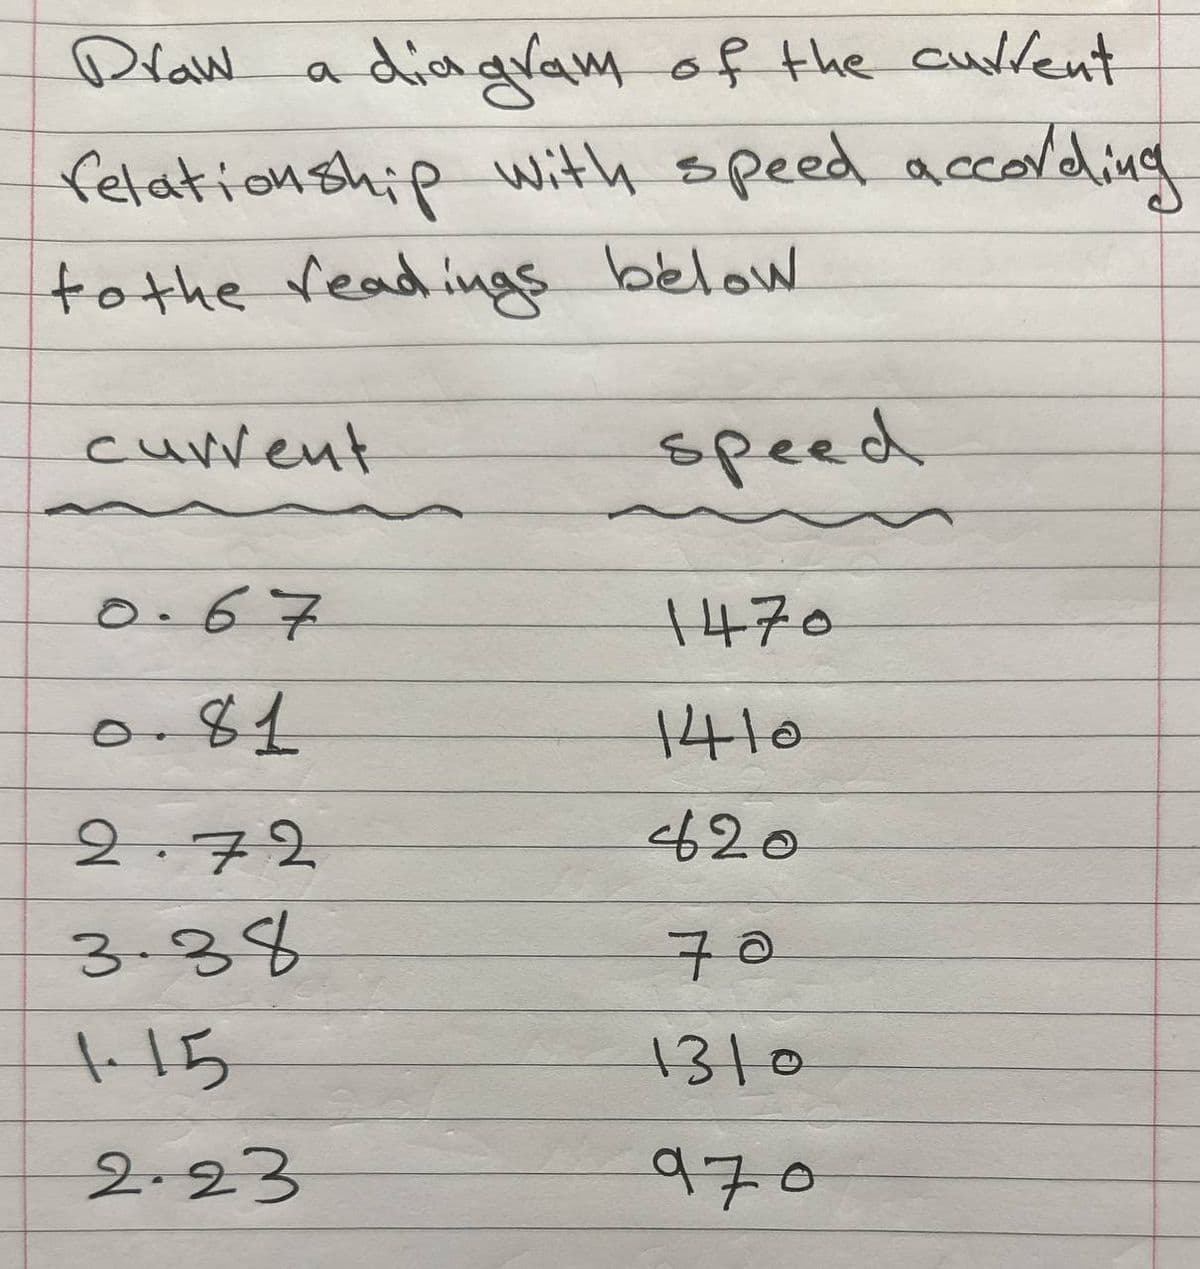 Draw a diagram of the current
relationship with speed according
to the readings below
current speed
0.67 1470
0.81 1410
2.72
3.38 70
1.15 1310
2.23 970